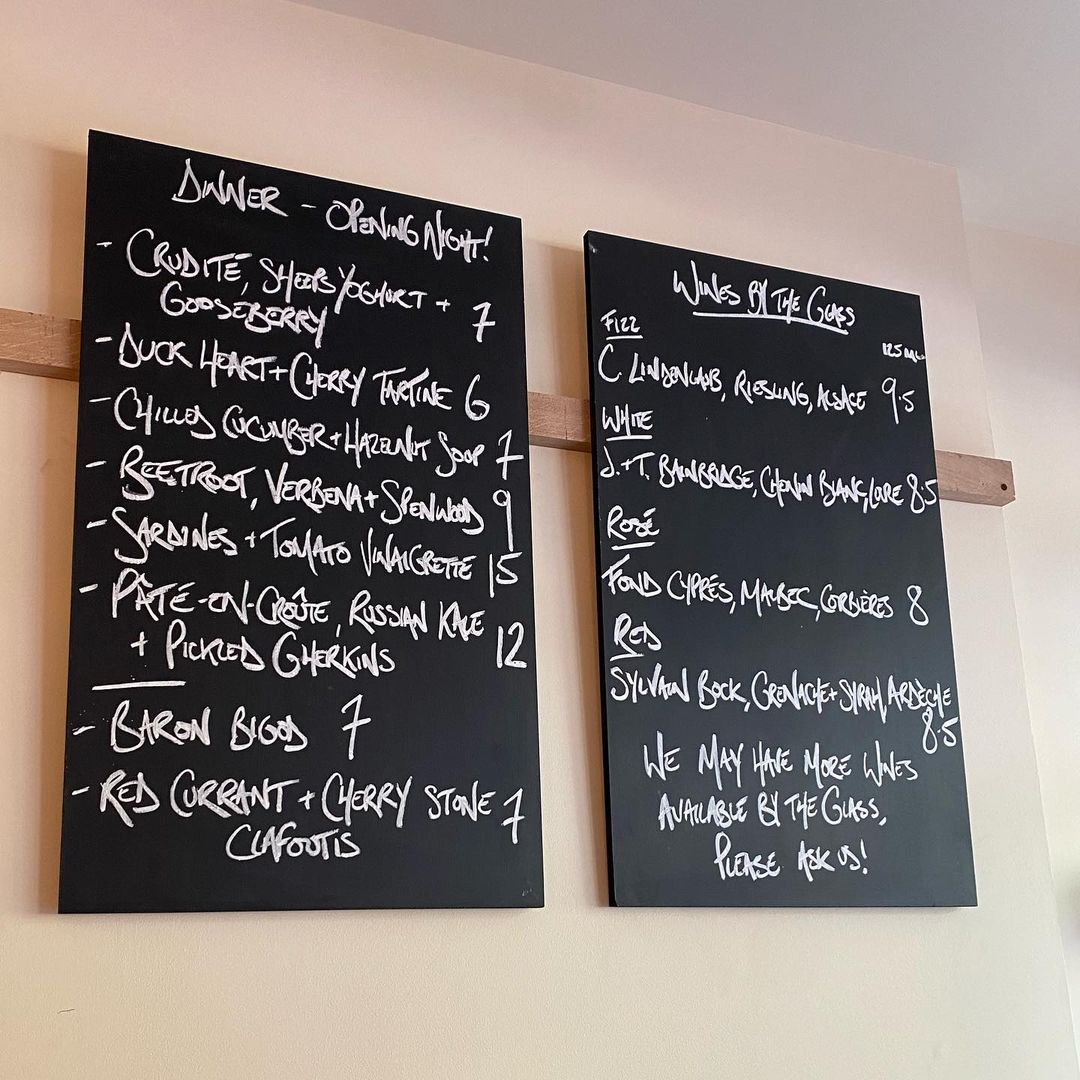 DINNER - OPENING NIGHT!
- CRUDITÉ, SHEEPS YOGHURT +
GOOSEBERRY 7
- DUCK HEART + CHERRY TARTINE 6
- CHILLED CUCUMBER + HAZELNUT SOUP 7
- BEETROOT, VERBENA + SPENWOOD 9
- SARDINES + TOMATO VINAIGRETTE 15
- PÂTÉ-EN-CROÛTE, RUSSIAN KALE
+ PICKLED GHERKINS 12
- BARON BIGOD 7
- RED CURRANT + CHERRY STONE 7
CLAFOUTIS
WINES BY THE GLASS
FIZZ
125ML
C. LINDENLAUB, RIESLING, ALSACE 9.5
WHITE
J.+T. BAINBRIDGE, CHENIN BLANC, LOIRE 8.5
ROSÉ
FOND CYPRÈS, MALBEC, CORBIÈRES 8
RED
SYLVAIN BOCK, GRENACHE + SYRAH, ARDÈCHE
8.5
WE MAY HAVE MORE WINES
AVAILABLE BY THE GLASS,
PLEASE ASK US!